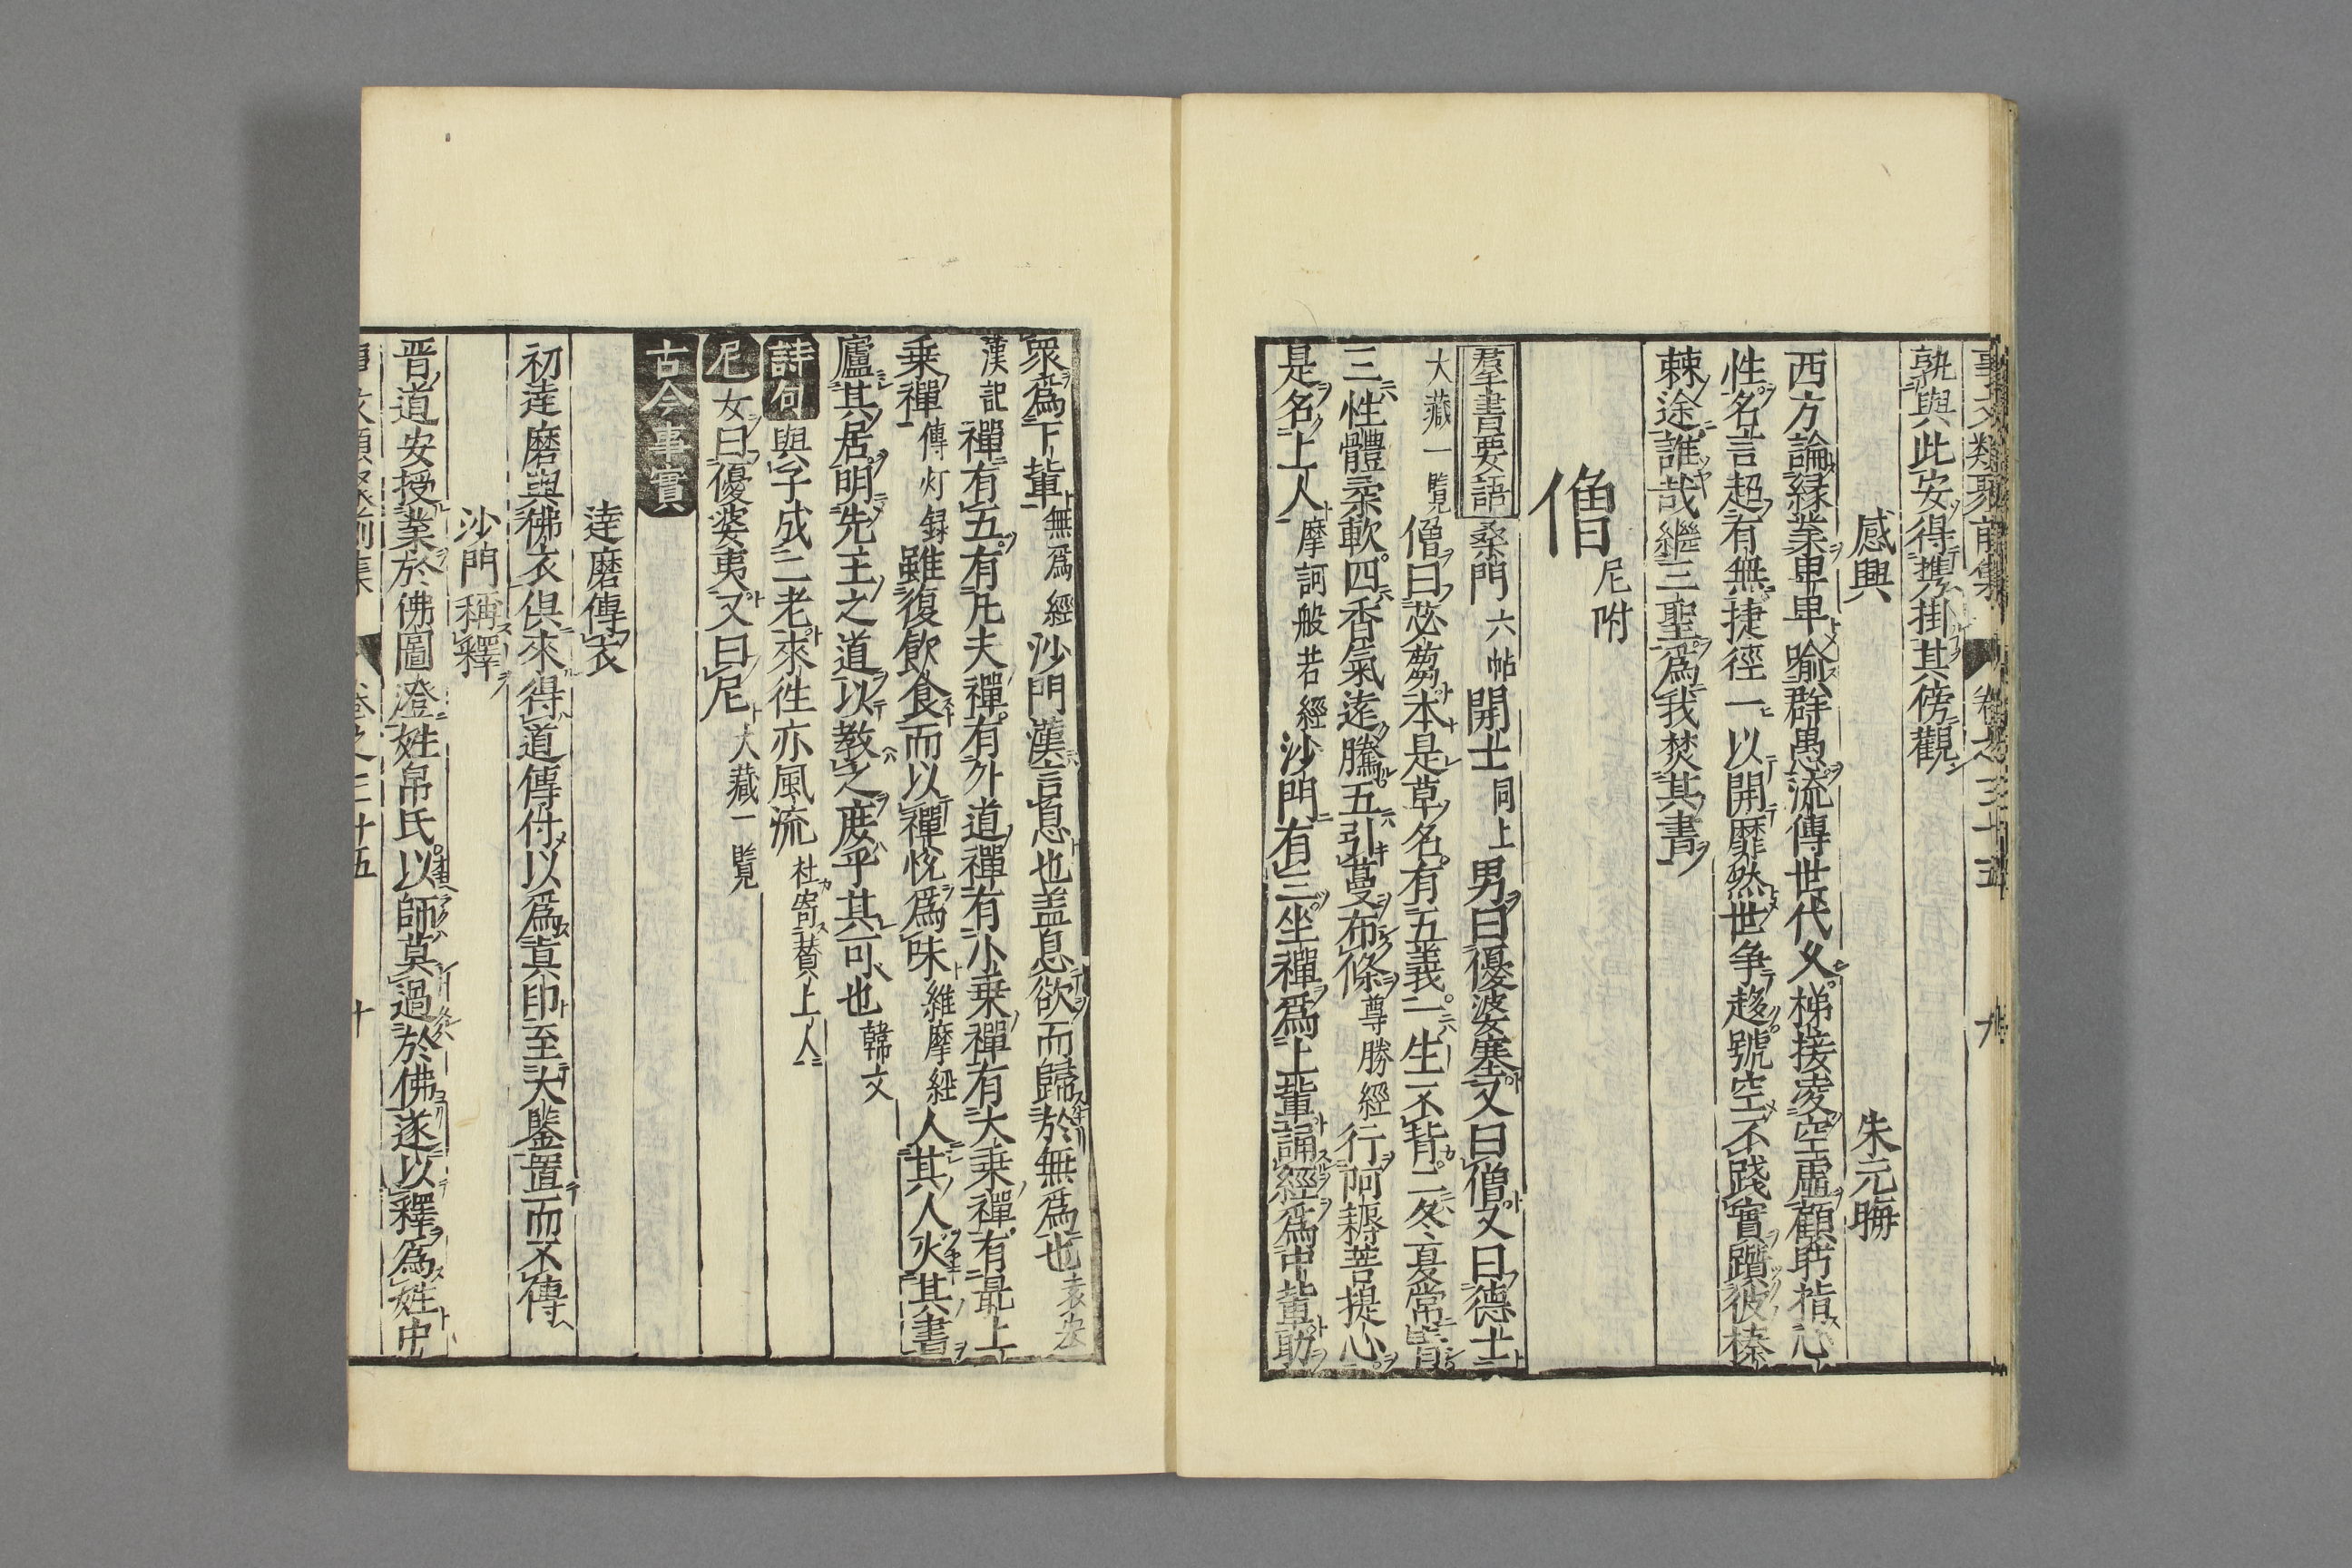 事文類聚前集 卷之三十五 九
孰與此安得携掛其傍觀
感興 朱元晦
西方論緣業卑卑喻群愚流傳世代久梯接凌空虛顧眄指心
性名言超有無捷徑一以開靡然世爭趍號空不踐實躓彼榛
棘途誰哉繼三聖爲我焚其書
僧 尼附
羣書要語 桑門 六帖 開士 同上 男曰優婆塞又曰僧又曰德士
大藏一覽 僧曰苾蒭本是草名有五義一生不背二冬夏常青
三性體柔軟四香氣遠騰五引蔓布條 尊勝經 行阿耨菩提心
是名上人 摩訶般若經 沙門有三坐禪爲上輩誦經爲中輩助
衆爲下輩 無爲經 沙門漢言息也盖息欲而歸於無爲也 袁宏
漢記 禪有五有凡夫禪有外道禪有小乗禪有大乗禪有最上
乗禪 傳灯録 雖復飮食而以禪悅爲味 維摩經 人其人火其書
廬其居明先王之道以教之庶乎其可也 韓文
詩句 與子成二老來徃亦風流 杜寄賛上人
尼 女曰優婆夷又曰尼 大藏一覽
古今事實
達磨傳衣
初達磨與佛衣俱來得道傳付以爲真印至大鑒置而不傳
沙門稱釋
晋道安授業於佛圖澄姓帛氏以師莫過於佛遂以釋爲姓中
事文類聚前集 卷之三十五 十